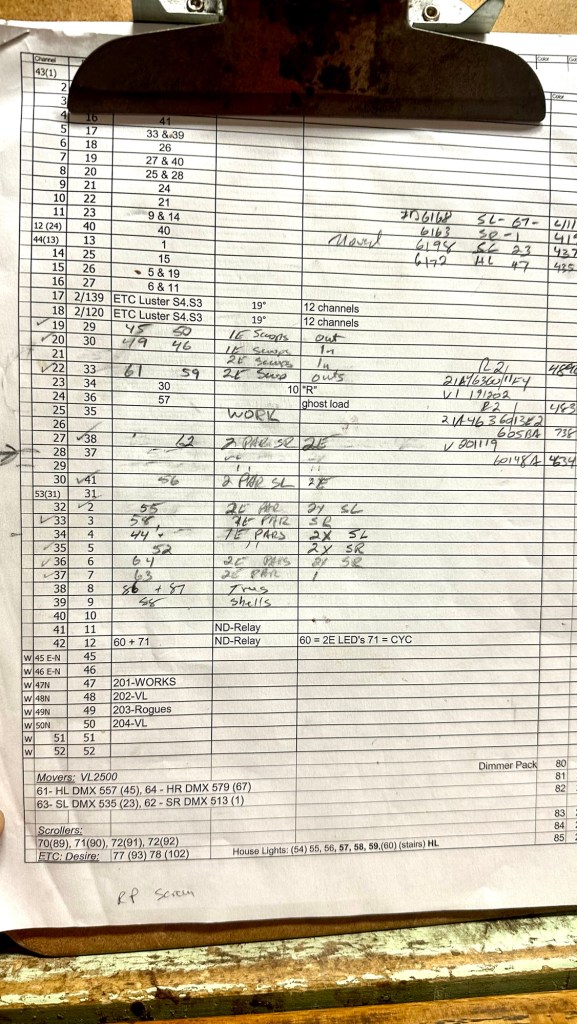 Channel Color
43(1)
2
3 Color
4 16 41
5 17 33 & 39
6 18 26
7 19 27 & 40
8 20 25 & 28
9 21 24
10 22 21
11 23 9 & 14 6168 SL- 67-
12 (24) 40 40 6163 SR-1
44(13) 13 1 Moved 6198 23
14 25 15 6172 HL 47
15 26 5 & 19
16 27 6 & 11
17 2/139 ETC Luster S4.S3 19° 12 channels
18 2/120 ETC Luster S4.S3 19° 12 channels
✓19 29 45 50 1E Scoops out
✓20 30 49 46 1E Scoops In
21 2E Scoops In
✓22 33 61 59 2E Scoop outs
23 34 30 10 "R"
24 36 57 ghost load V1 191202
25 35 WORK R2
26 605BA
27 ✓38 62 2 PAR SR 2E V 201119
28 37 60148A
29
30 ✓41 56 2 PAR SL 2E
53(31) 31
32 ✓2 55 2E PAR 2x SL
✓33 3 58 1E PAR SR
34 4 44 1E PARS 2X SL
✓35 5 52 " 2X SR
✓36 6 64 2E PARS 2x SR
✓37 7 63 2E PAR
38 8 86 + 87 Trus
39 9 Shells
40 10
41 11 ND-Relay
42 12 60 + 71 ND-Relay 60 = 2E LED's 71 = CYC
W 45 E-N 45
W 46 E-N 46
W 47N 47 201-WORKS
W 48N 48 202-VL
W 49N 49 203-Rogues
W 50N 50 204-VL
W 51 51
W 52 52
Dimmer Pack 80
Movers: VL2500 81
61- HL DMX 557 (45), 64 - HR DMX 579 (67) 82
63- SL DMX 535 (23), 62 - SR DMX 513 (1)
83
Scrollers: 84
70(89), 71(90), 72(91), 72(92) 85
ETC: Desire: 77 (93) 78 (102) House Lights: (54) 55, 56, 57, 58, 59,(60) (stairs) HL
RP Screen